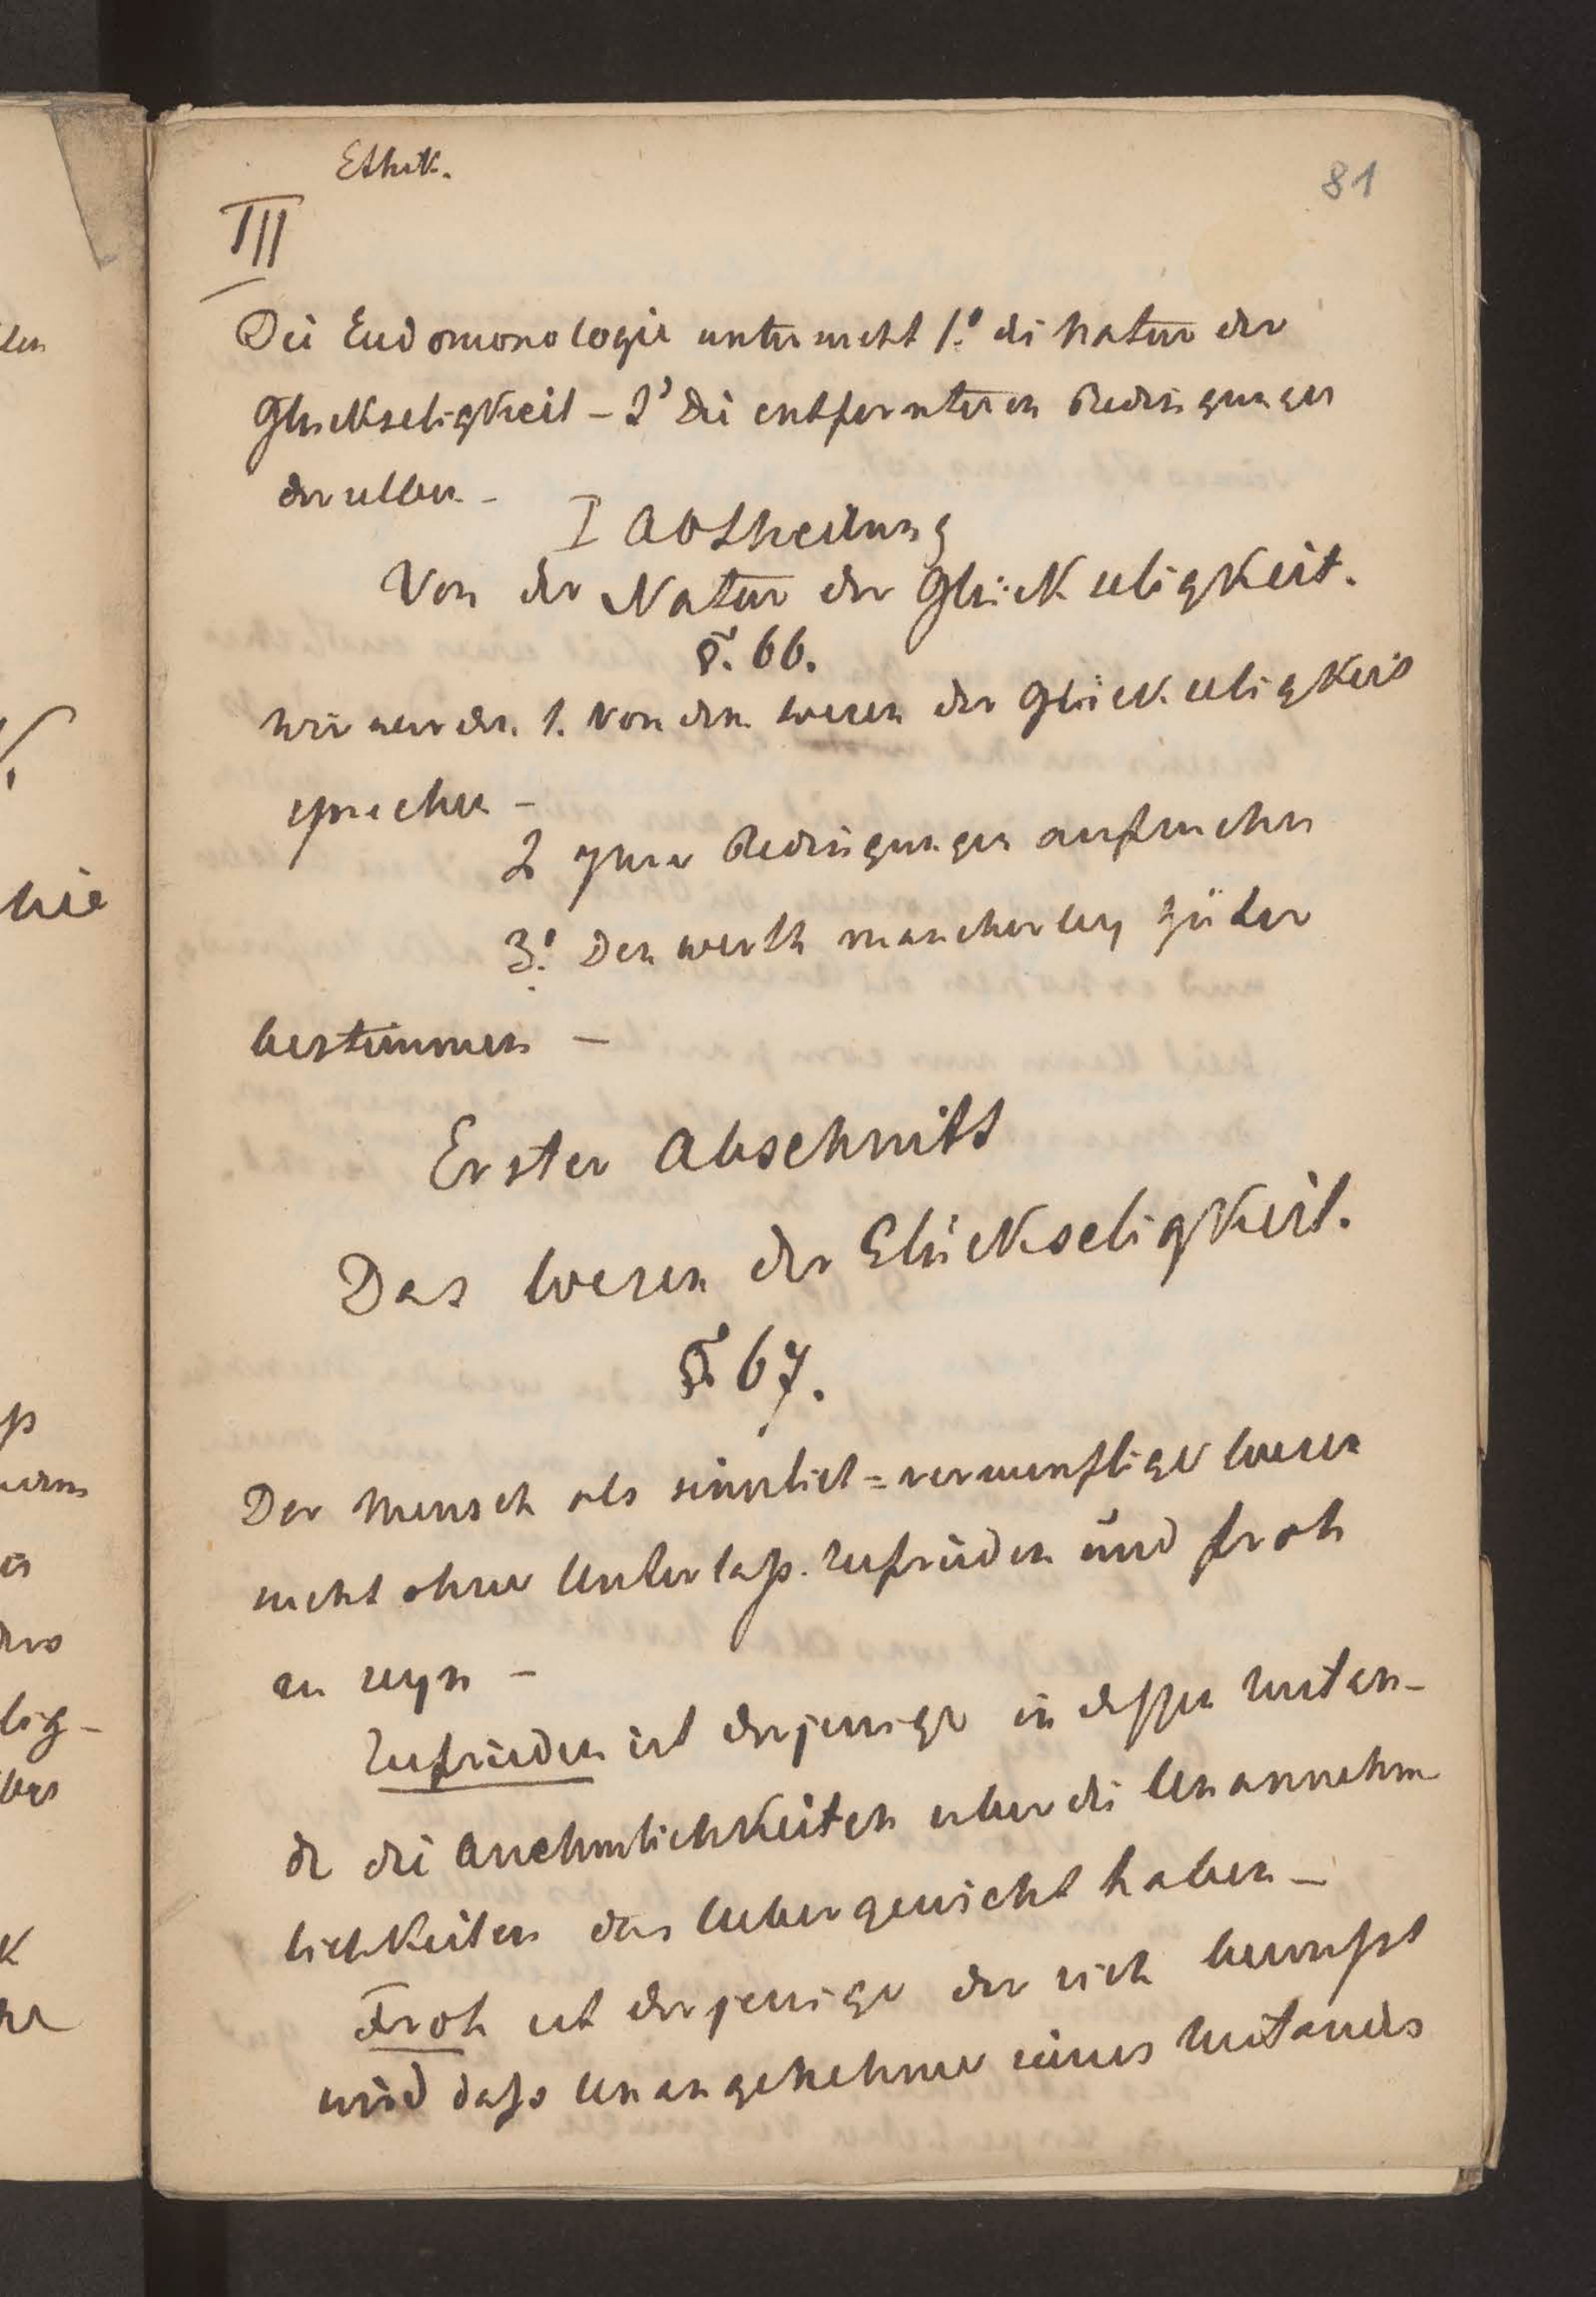 Ethik.
81
III
Die Eudomonologie untersucht 1.º die Natur der
Glückseligkeit – 2º die entfernteren Bedingungen
derselben –
I Abtheilung
Von der Natur der Glückseligkeit.
§. 66.
Wir werden 1. von dem Wesen der Glückseligkeit
sprechen –
2 yhre Bedingungen aufsuchen
3.º Den werth mancherley Güter
bestimmen –
Erster Abschnitt
Das Wesen der Glückseligkeit.
§. 67.
Der Mensch als sinnlich=vernunftiges Wesen
sucht ohne Unterlaß zufrieden und froh
zu seyn –
Zufrieden ist derjenige in deßen Zustan-
de die Anehmlichkeiten uber die Unannehm
lichkeiten das Uebergewicht haben –
Froh ist derjenige der sich bewußt
wird daß Unangenehme seines Zustandes